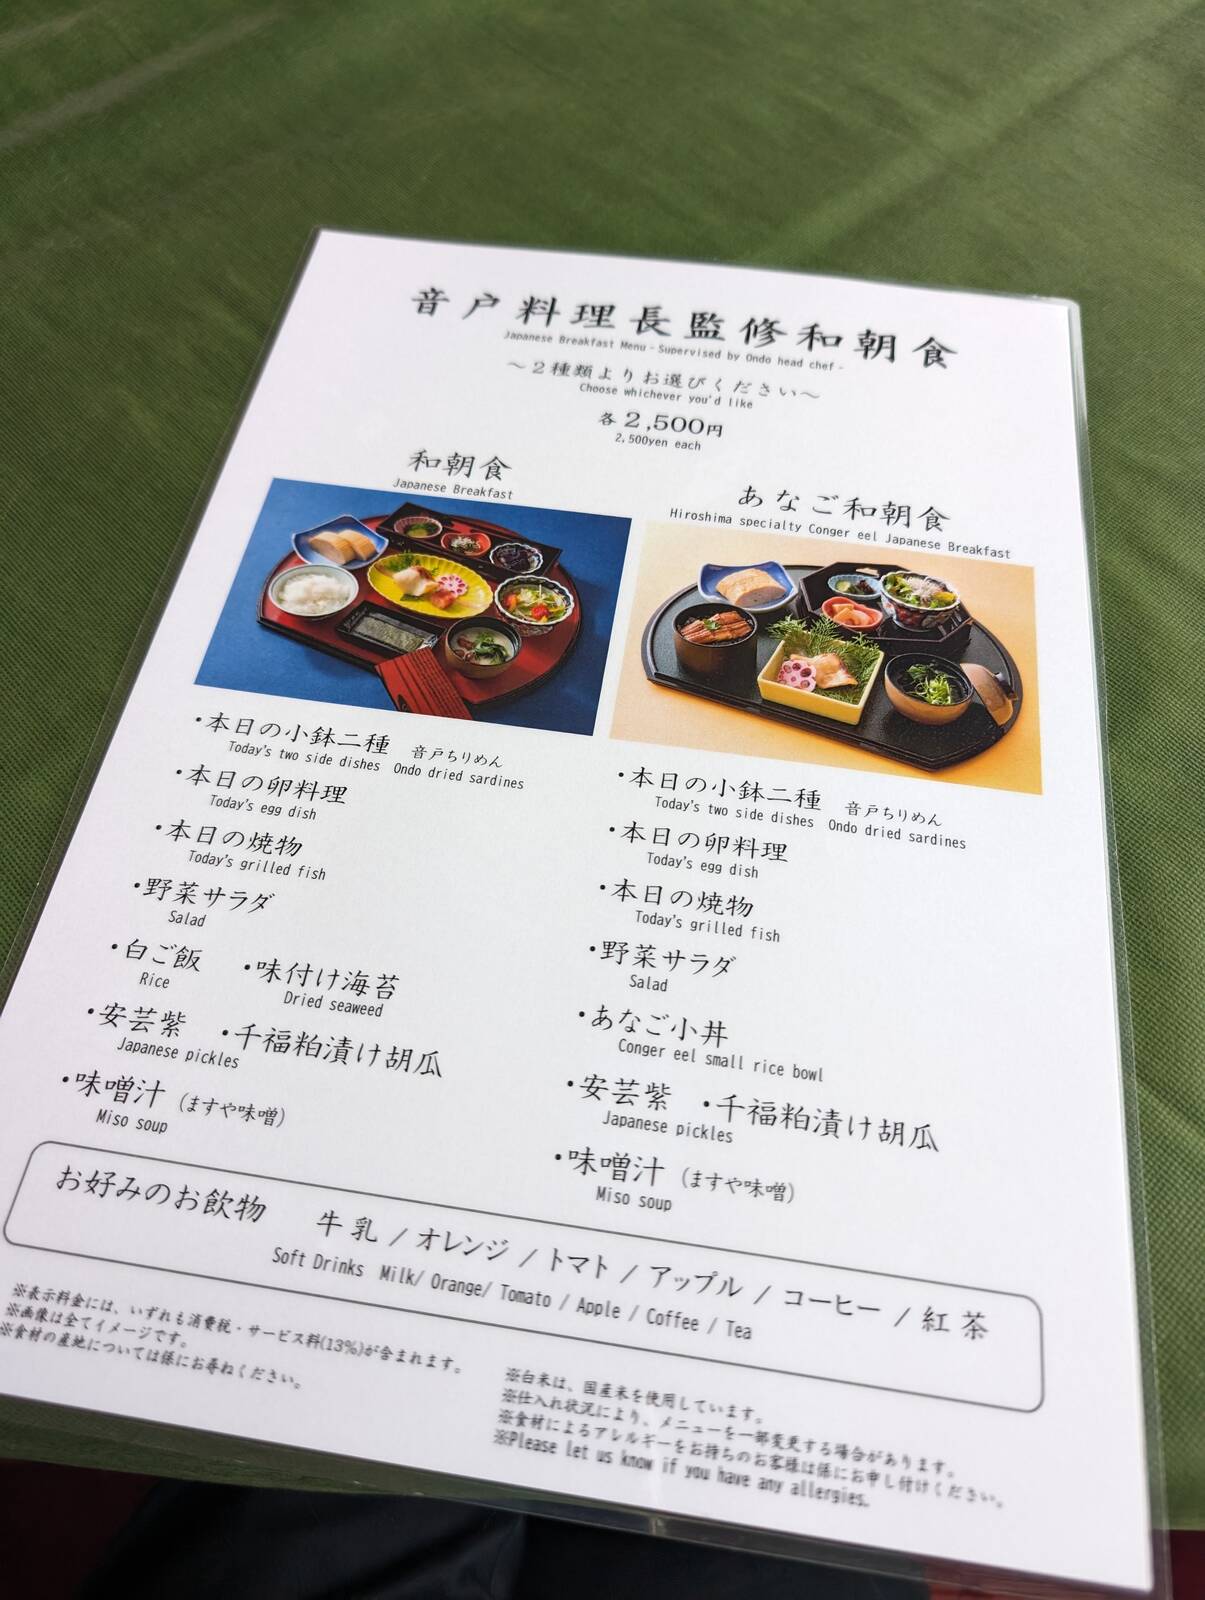 音戸料理長監修和朝食
Japanese Breakfast Menu - Supervised by Ondo head chef -
～2種類よりお選びください～
Choose whichever you'd like
各2,500円
2,500yen each
和朝食
Japanese Breakfast
・本日の小鉢二種 音戸ちりめん
Today's two side dishes Ondo dried sardines
・本日の卵料理
Today's egg dish
・本日の焼物
Today's grilled fish
・野菜サラダ
Salad
・白ご飯 ・味付け海苔
Rice Dried seaweed
・安芸紫 ・千福粕漬け胡瓜
Japanese pickles
・味噌汁 (ますや味噌)
Miso soup
あなご和朝食
Hiroshima specialty Conger eel Japanese Breakfast
・本日の小鉢二種 音戸ちりめん
Today's two side dishes Ondo dried sardines
・本日の卵料理
Today's egg dish
・本日の焼物
Today's grilled fish
・野菜サラダ
Salad
・あなご小丼
Conger eel small rice bowl
・安芸紫 ・千福粕漬け胡瓜
Japanese pickles
・味噌汁 (ますや味噌)
Miso soup
お好みのお飲物 牛乳 / オレンジ / トマト / アップル / コーヒー / 紅茶
Soft Drinks Milk/ Orange/ Tomato / Apple / Coffee / Tea
※表示料金には、いずれも消費税・サービス料(13%)が含まれます。
※画像は全てイメージです。
※食材の産地については係にお尋ねください。
※白米は、国産米を使用しています。
※仕入れ状況により、メニューを一部変更する場合があります。
※食材によるアレルギーをお持ちのお客様は係にお申し付けください。
※Please let us know if you have any allergies.